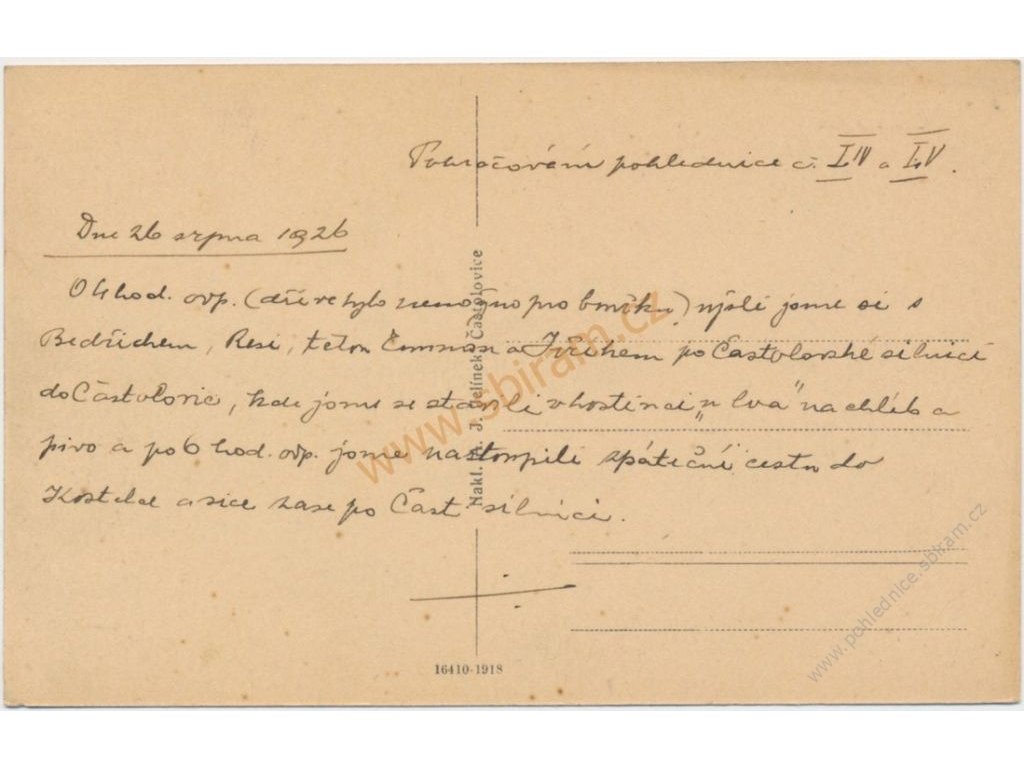 Pokračování pohlednice č. LIV a LV.
Dne 26 srpna 1926
O 4 hod. odp. (dříve bylo nemožno pro bouřku) vyšli jsme si s
Bedřichem, Resi, tetou Emmou a Jiříkem po Častolovské silnici
do Častolovic, kde jsme se stavili v hostinci „u lva“ na chléb a
pivo a po 6 hod. odp. jsme nastoupili zpáteční cestu do
Kostelce a sice zase po Čast. silnici.
Nakl. J. Jelínek, Častolovice
16410-1918
www.sbiram.cz
www.pohlednice.sbiram.cz